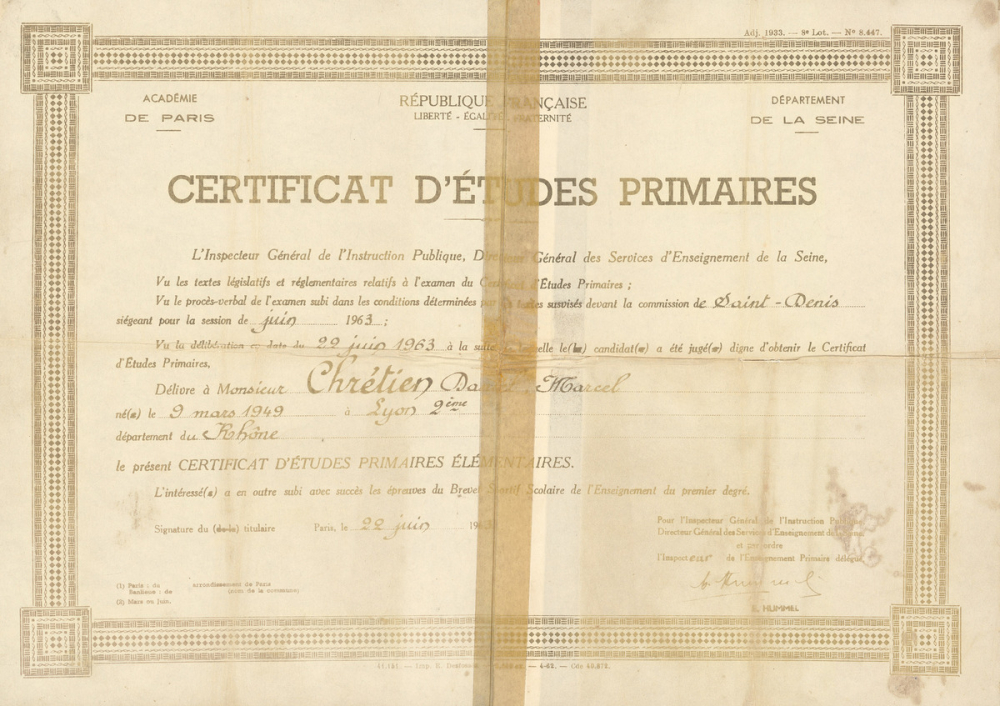 Adj. 1933. — 8e Lot. — No 8.447.
ACADÉMIE
DE PARIS
RÉPUBLIQUE FRANÇAISE
LIBERTÉ - ÉGALITÉ - FRATERNITÉ
DÉPARTEMENT
DE LA SEINE
CERTIFICAT D'ÉTUDES PRIMAIRES
L'Inspecteur Général de l'Instruction Publique, Directeur Général des Services d'Enseignement de la Seine,
Vu les textes législatifs et réglementaires relatifs à l'examen du Certificat d'Études Primaires ;
Vu le procès-verbal de l'examen subi dans les conditions déterminées par les textes susvisés devant la commission de Saint-Denis
siégeant pour la session de juin 1963 ;
Vu la délibération en date du 22 juin 1963 à la suite de laquelle le(la) candidat(e) a été jugé(e) digne d'obtenir le Certificat
d'Études Primaires,
Délivre à Monsieur Chrétien Daniel Marcel
né(e) le 9 mars 1949 à Lyon 2ème
département du Rhône
le présent CERTIFICAT D'ÉTUDES PRIMAIRES ÉLÉMENTAIRES.
L'intéressé(e) a en outre subi avec succès les épreuves du Brevet Sportif Scolaire de l'Enseignement du premier degré.
Signature du (de la) titulaire
Paris, le 22 juin 196
Pour l'Inspecteur Général de l'Instruction Publique
Directeur Général des Services d'Enseignement de la Seine
et par ordre
l'Inspecteur de l'Enseignement Primaire délégué,
E. HUMMEL
(1) Paris : du arrondissement de Paris
Banlieue : de (nom de la commune)
(2) Mars ou juin.
— Imp. — 4-62. —